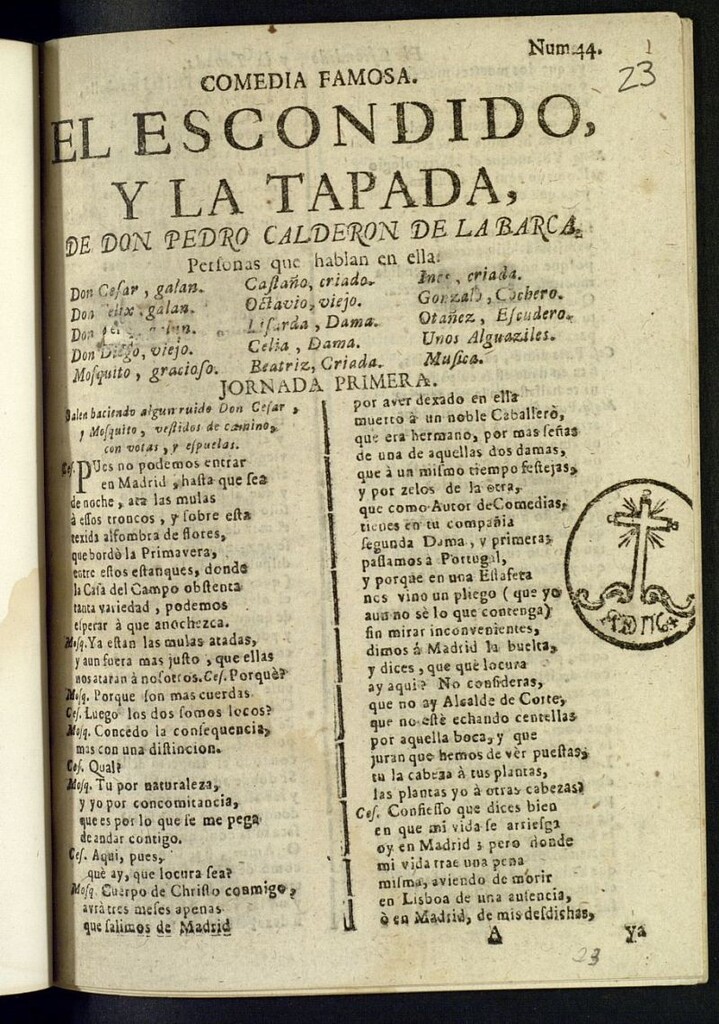 Num.44.
1
23
COMEDIA FAMOSA.
EL ESCONDIDO,
Y LA TAPADA,
DE DON PEDRO CALDERON DE LA BARCA.
Personas que hablan en ella.
Don Cesar, galan.
Don Felix, galan.
Don
Don Diego, viejo.
Mosquito, gracioso.
Castaño, criado.
Octavio, viejo.
Lisarda, Dama.
Celia, Dama.
Beatriz, Criada.
Ines, criada.
Gonzalo, Cochero.
Otañez, Escudero.
Unos Alguaziles.
Musica.
JORNADA PRIMERA.
Salen haciendo algun ruido Don Cesar,
y Mosquito, vestidos de camino,
con votas, y espuelas.
Ces. PUes no podemos entrar
en Madrid, hasta que sea
de noche, ata las mulas
à essos troncos, y sobre esta
texida alfombra de flores,
que bordò la Primavera,
entre estos estanques, donde
la Casa del Campo obstenta
tanta variedad, podemos
esperar à que anochezca.
Mosq. Ya estan las mulas atadas,
y aun fuera mas justo, que ellas
nos ataran à nosotros. Ces. Porquè?
Mosq. Porque son mas cuerdas.
Ces. Luego los dos somos locos?
Mosq. Concedo la consequencia,
mas con una distincion.
Ces. Qual?
Mosq. Tu por naturaleza,
y yo por concomitancia,
que es por lo que se me pega
de andar contigo.
Ces. Aqui, pues,
què ay, que locura sea?
Mosq. Cuerpo de Christo conmigo,
avrà tres meses apenas
que salimos de Madrid
por aver dexado en ella
muerto à un noble Caballerò,
que era hermano, por mas señas
de una de aquellas dos damas,
que à un mismo tiempo festejas,
y por zelos de la otra,
que como Autor de Comedias,
tienes en tu compañia
segunda Dama, y primera:
passamos a Portugal,
y porque en una Estafeta
nos vino un pliego (que yo
aun no sè lo que contenga)
sin mirar inconvenientes,
dimos à Madrid la buelta,
y dices, que què locura
ay aqui? No consideras,
que no ay Alcalde de Corte,
que no estè echando centellas
por aquella boca, y que
juran que hemos de vèr puestas,
tu la cabeza à tus plantas,
las plantas yo à otras cabezas?
Ces. Confiesso que dices bien
en que mi vida se arriesga
oy en Madrid; pero donde
mi vida trae una pena
misma, aviendo de morir
en Lisboa de una ausencia,
ò en Madrid, de mis desdichas,
A
ya
23